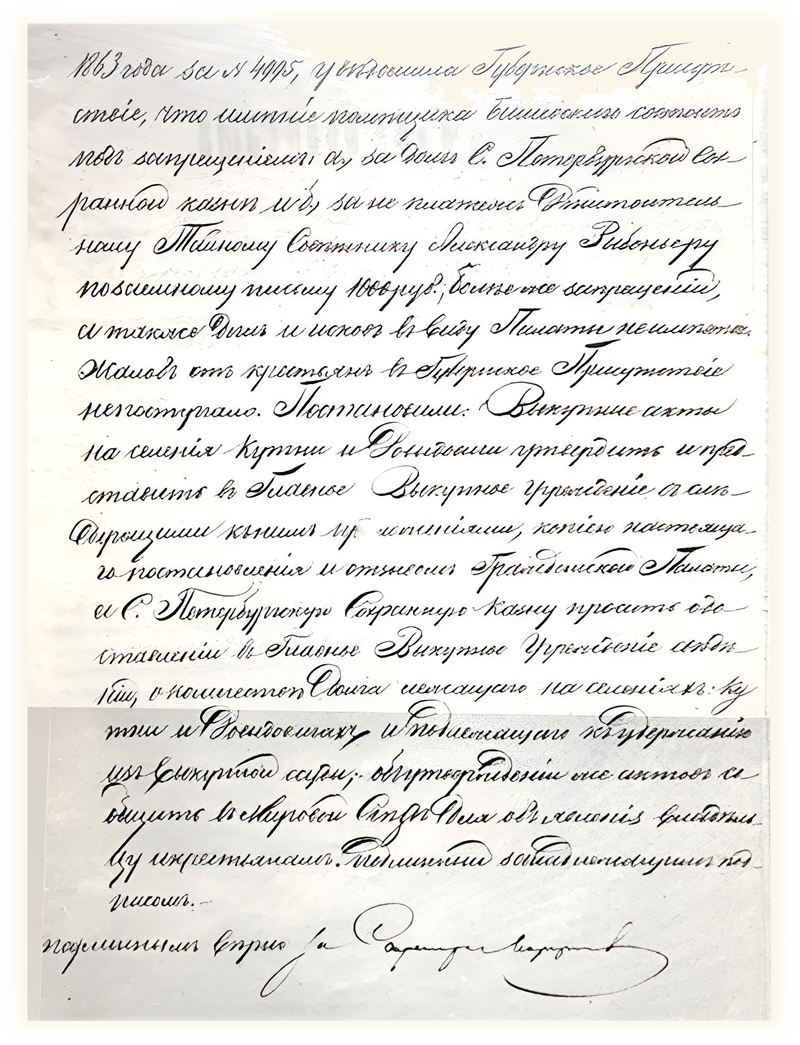 1863 года за № 4995, уведомила Губернское Присут-
ствіе, что имѣніе помѣщика Бишевскаго состоитъ
подъ запрещеніемъ: а, за долгъ С. Петербургской Сох-
ранной казнѣ и б, за не платежъ Дѣйствитель-
ному Тайному Совѣтнику Александру Рибопьеру
по заемному письму 1000 руб.; болѣе же запрещеній,
а также дѣлъ и исковъ въ виду Палаты не имѣется.
Жалобъ отъ крестьянъ въ Губернское Присутствіе
не поступало. Постановили: Выкупные акты
на селенія Кутни и утвердить и пред-
ставить въ Главное Выкупное Учрежденіе съ слѣ-
дующими къ нимъ приложеніями, копіею настояща-
го постановленія и отзывомъ Гражданской Палаты,
а С. Петербургскую Сохранную Казну просить о до-
ставленіи въ Главное Выкупное Учрежденіе свѣдѣ-
ній, о количествѣ долга лежащаго на селеніяхъ: Ку-
тни и и подлежащаго къ удержанію
изъ выкупной ссуды; объ утвержденіи же актовъ со-
общить въ Мировой Съѣздъ для объявленія владѣль-
цу и крестьянамъ. Подлинный за надлежащимъ под-
писомъ.
вѣрно За Секретаря